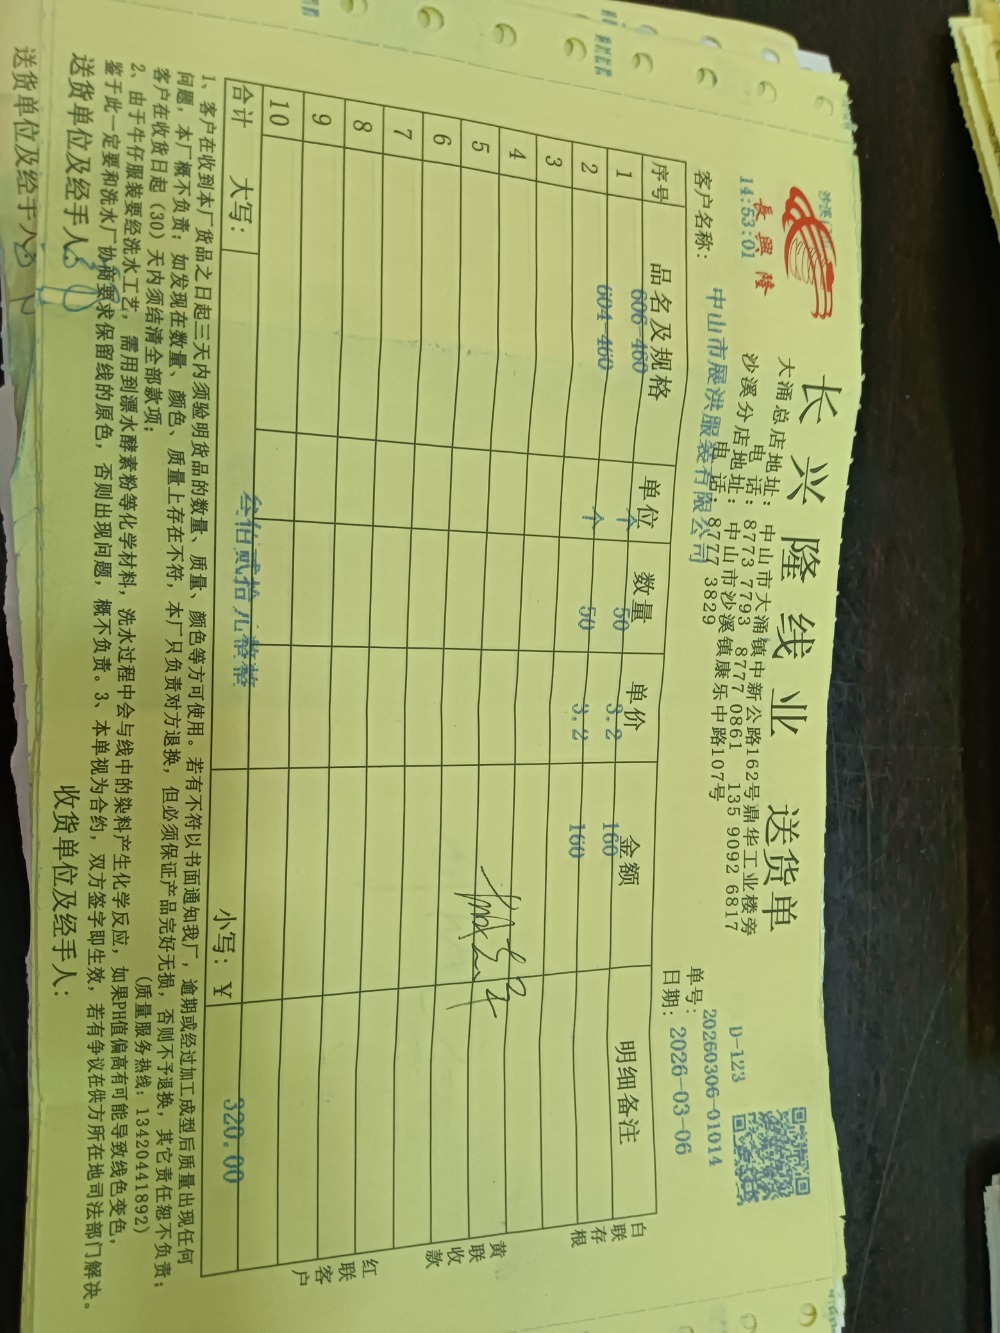 沙溪
14:53:01
長興隆
长兴隆线业 送货单
大涌总店地址：中山市大涌镇中新公路162号鼎华工业楼旁
电 话：8773 7793 8777 0861 135 9092 6817
沙溪分店地址：中山市沙溪镇康乐中路107号
电 话：8777 3829
D-123
单号：20260306-01014
客户名称：中山市展洪服装有限公司
日期：2026-03-06
序号 品名及规格 单位 数量 单价 金额 明细备注
1 606-460 个 50 3.2 160
2 604-460 个 50 3.2 160
3
4
5
6
7
8
9
10
合计 大写：叁佰贰拾元整整 小写：￥ 320.00
白联存根
黄联收款
红联客户
1、客户在收到本厂货品之日起三天内须验明货品的数量、质量、颜色等方可使用。若有不符以书面通知我厂，逾期或经过加工成型后质量出现任何
问题，本厂概不负责；如发现在数量、颜色、质量上存在不符，本厂只负责对方退换，但必须保证产品完好无损，否则不予退换，其它责任恕不负责；
客户在收货日起（30）天内须结清全部款项； （质量服务热线：13420441892）
2、由于牛仔服装要经洗水工艺，需用到漂水酵素粉等化学材料，洗水过程中会与线中的染料产生化学反应，如果PH值偏高有可能导致线色变色，
鉴于此一定要和洗水厂协商要求保留线的原色，否则出现问题，概不负责。3、本单视为合约，双方签字即生效，若有争议在供方所在地司法部门解决。
送货单位及经手人： 收货单位及经手人：
送货单位及经手人